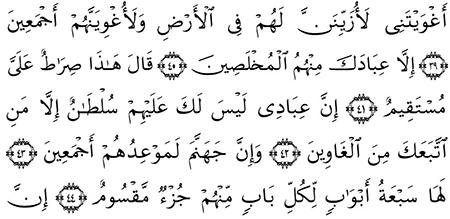 أَغْوَيْتَنِى لَأُزَيِّنَنَّ لَهُمْ فِى ٱلْأَرْضِ وَلَأُغْوِيَنَّهُمْ أَجْمَعِينَ
﴿٣٩﴾ إِلَّا عِبَادَكَ مِنْهُمُ ٱلْمُخْلَصِينَ ﴿٤٠﴾ قَالَ هَـٰذَا صِرَٰطٌ عَلَىَّ
مُسْتَقِيمٌ ﴿٤١﴾ إِنَّ عِبَادِى لَيْسَ لَكَ عَلَيْهِمْ سُلْطَـٰنٌ إِلَّا مَنِ
ٱتَّبَعَكَ مِنَ ٱلْغَاوِينَ ﴿٤٢﴾ وَإِنَّ جَهَنَّمَ لَمَوْعِدُهُمْ أَجْمَعِينَ ﴿٤٣﴾
لَهَا سَبْعَةُ أَبْوَٰبٍ لِّكُلِّ بَابٍ مِّنْهُمْ جُزْءٌ مَّقْسُومٌ ﴿٤٤﴾ إِنَّ